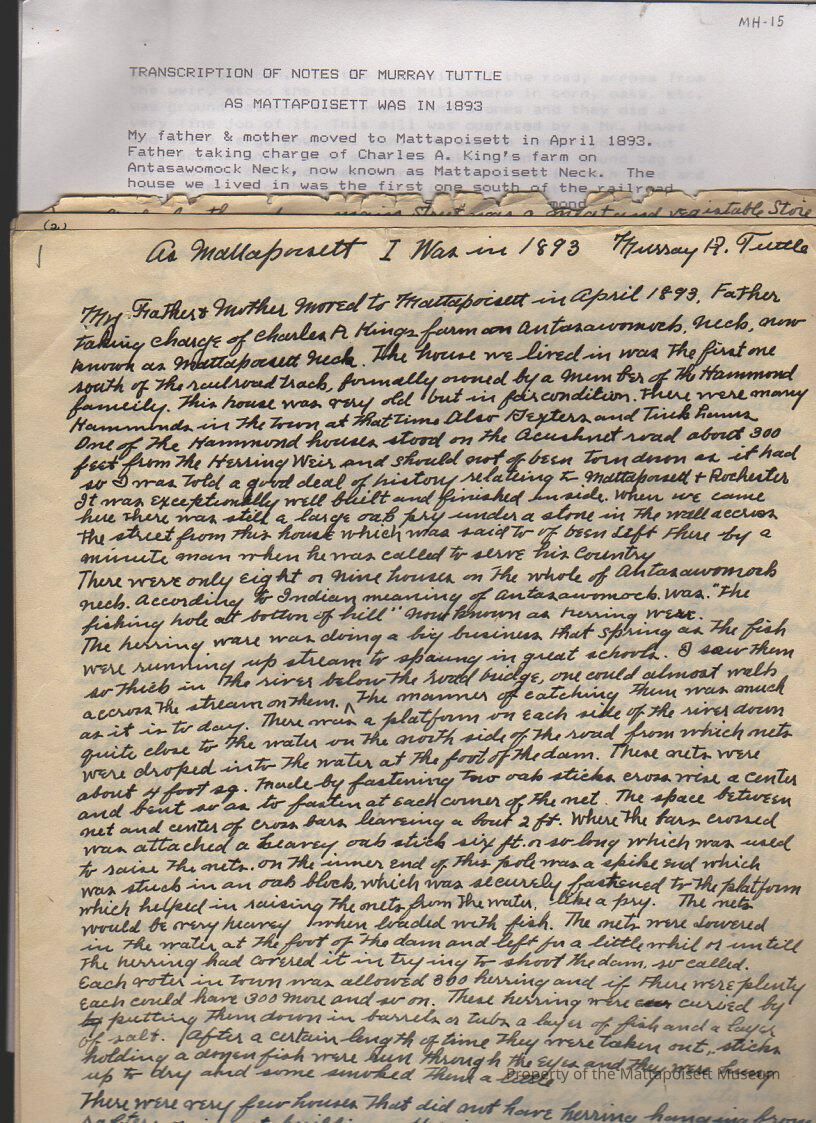 MH-15
TRANSCRIPTION OF NOTES OF MURRAY TUTTLE
AS MATTAPOISETT WAS IN 1893
My father & mother moved to Mattapoisett in April 1893.
Father taking charge of Charles A. King's farm on
Antasawomock Neck, now known as Mattapoisett Neck. The
house we lived in was the first one south of the railroad
mond
main Street was a meat and vegistable Store
(2)
1
As Mattapoisett I Was in 1893 Murray H. Tuttle
My Father & Mother moved to Mattapoisett in April 1893, Father
taking charge of Charles A Kings farm on Antasawomock Neck, now
known as Mattapoisett Neck. The house we lived in was the first one
south of the railroad track, formally owned by a member of the Hammond
fameily. This house was very old but in fair condition. There were many
Hammonds in the town at that time Also Dexters and Tinkhams
One of the Hammond houses stood on the Acushnet road about 300
feet from the Herring Weir and should not of been torn down as it had
so I was told a good deal of history relating to Mattapoisett & Rochester
It was exceptionally well built and finished inside. When we came
here there was still a large oak pry under a stone in the wall accross
the street from this house which was said to of been left there by a
minute man when he was called to serve his Country
There were only eight or nine houses on the whole of Antasawomock
neck. According to Indian meaning of Antasawomock was. "The
fishing hole at bottom of hill" now known as Herring were.
The herring ware was doing a big business that spring as the fish
were running up stream to spaung in great schools. I saw them
so thick in the river below the road bridge, one could almost walk
accross the stream on them. The manner of catching them was much
as it is to day. There was a platform on each side of the river down
quite close to the water on the north side of the road from which nets
were droped into the water at the foot of the dam. These nets were
about 4 foot sq. made by fastening two oak sticks cross wise a center
and bent so as to fasten at each corner of the net. The space between
net and center of cross bars leaveing a bout 2 ft. Where the bars crossed
was attached a heavey oak stick six ft. or so long which was used
to raise the nets. on the inner end of this pole was a spike end which
was stuck in an oak block, which was securely fastened to the platform
which helped in raising the nets from the water, like a pry. The nets
would be very heavey when loaded with fish. The nets were lowered
in the water at the foot of the dam and left for a little whil or untill
the herring had covered it in try ing to shoot the dam, so called.
Each voter in town was allowed 300 herring and if there were plenty
each could have 300 more and so on. These herring were curied by
by putting them down in barrels or tubs a layer of fish and a layer
of salt. After a certain length of time they were taken out, sticks
holding a dozen fish were run through the eyes and they were hung
up to dry and some smoked them a little
There were very few houses that did not have herring hanging from
Property of the Mattapoisett Museum